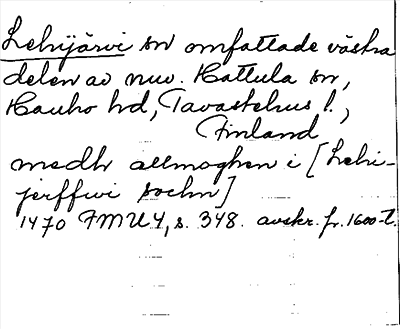 Lehijärvi sn omfattade västra
delen av nuv. Hattula sn,
Hauho hd, Tavastehus l.,
Finland
medh allmoghen i [Lehi-
jerffwi sochn]
1470 FMU 4, s. 348. avskr. fr. 1600-t.